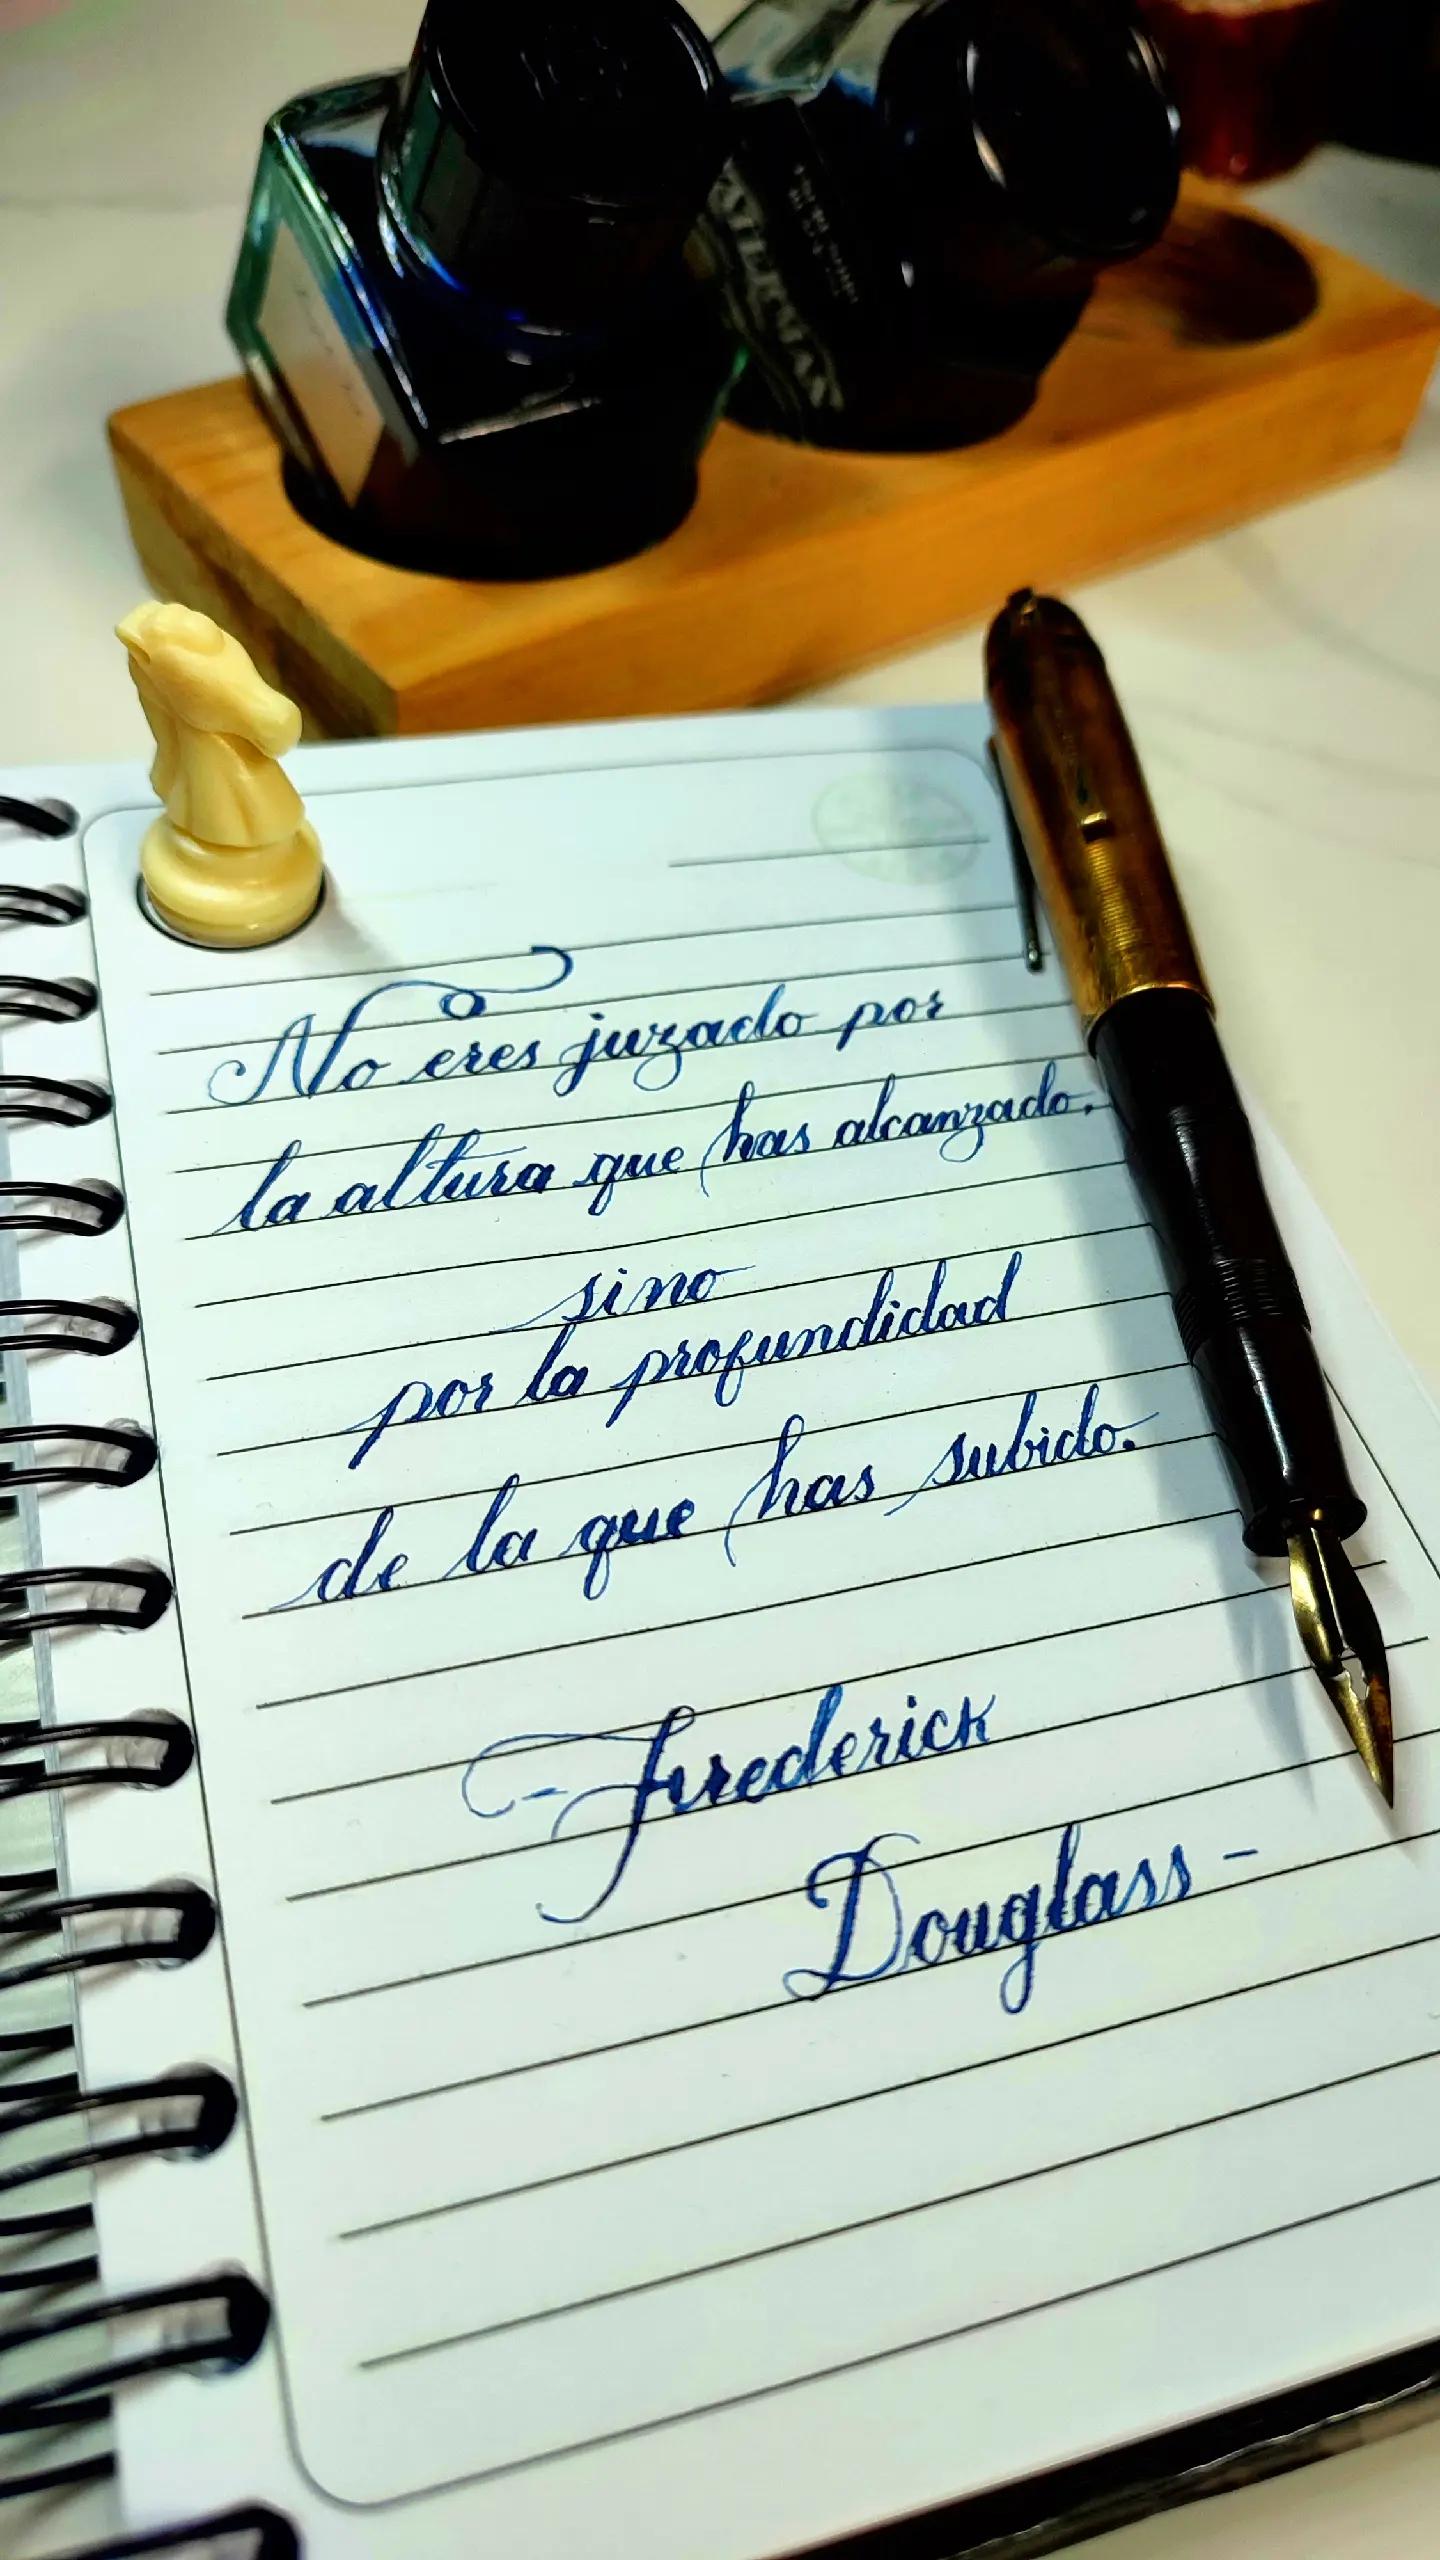 WATERMAN
No eres juzado por
la altura que has alcanzado.
sino
por la profundidad
de la que has subido.
- Frederick
Douglass -